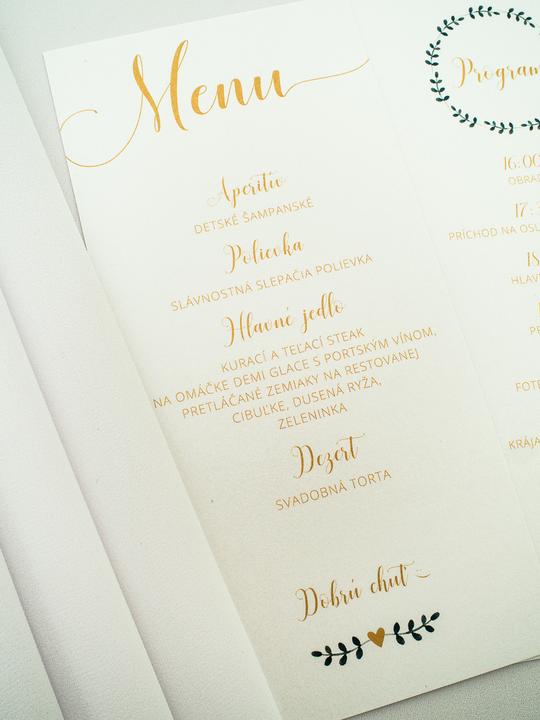 Menu
Aperitív
DETSKÉ ŠAMPANSKÉ
Polievka
SLÁVNOSTNÁ SLEPAČIA POLIEVKA
Hlavné jedlo
KURACÍ A TEĽACÍ STEAK
NA OMÁČKE DEMI GLACE S PORTSKÝM VÍNOM,
PRETLÁČANÉ ZEMIAKY NA RESTOVANEJ
CIBUĽKE, DUSENÁ RYŽA,
ZELENINKA
Dezert
SVADOBNÁ TORTA
Dobrú chuť
Program
16:00
OBRAD
17:
PRÍCHOD NA OSL
18
HLAV
FOTE
KRÁJA